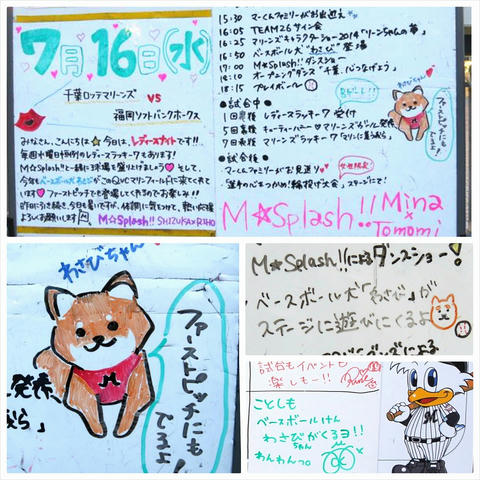 7月16日(水)
千葉ロッテマリーンズ
VS
福岡ソフトバンクホークス
みなさん、こんにちは☆今日は、レディースナイトです!!
毎週水曜日恒例のレディースラッキー7もあります!
M☆Splash!!と一緒に球場を盛り上げましょう♡そして、
今年もベースボール犬わさびがこのQVCマリンフィールドに来てくれて
います♡ファーストピッチでも登場してくれるのでお楽しみに!!
昨日に引き続き、今日も暑いですが、体調に気をつけて、熱い応援
よろしくお願いします
M☆Splash!! SHIZUKA×RIHO
15:30 マーくんファミリーがお出迎え
16:05 TEAM26サイン会
16:25 マリーンズキャラクターショー2014「リーンちゃんの夢」
16:50 ベースボール犬"わさび"登場
17:00 M☆Splash!!ダンスショー
18:10 オープニングダンス「千葉、心つなげよう」
18:15 プレイボール
●試合中●
1回裏後 レディースラッキー7受付
5回裏後
7回裏前 マリーンズラッキー7
●試合後●
マーくんファミリーがお見送り
わさびちゃん
ファーストピッチにもでるよ
M☆Splash!! Mina
×
Tomomi
わさびちゃん
ファーストピッチにも
でるよ
M☆Splash!!によるダンスショー!
ベースボール犬「わさび」が
ステージに遊びにくるよ
試合もイベントも
楽しもー!!
ことしも
ベースボールけん
わさびちゃんがくるヨ!!
わんわんっ。